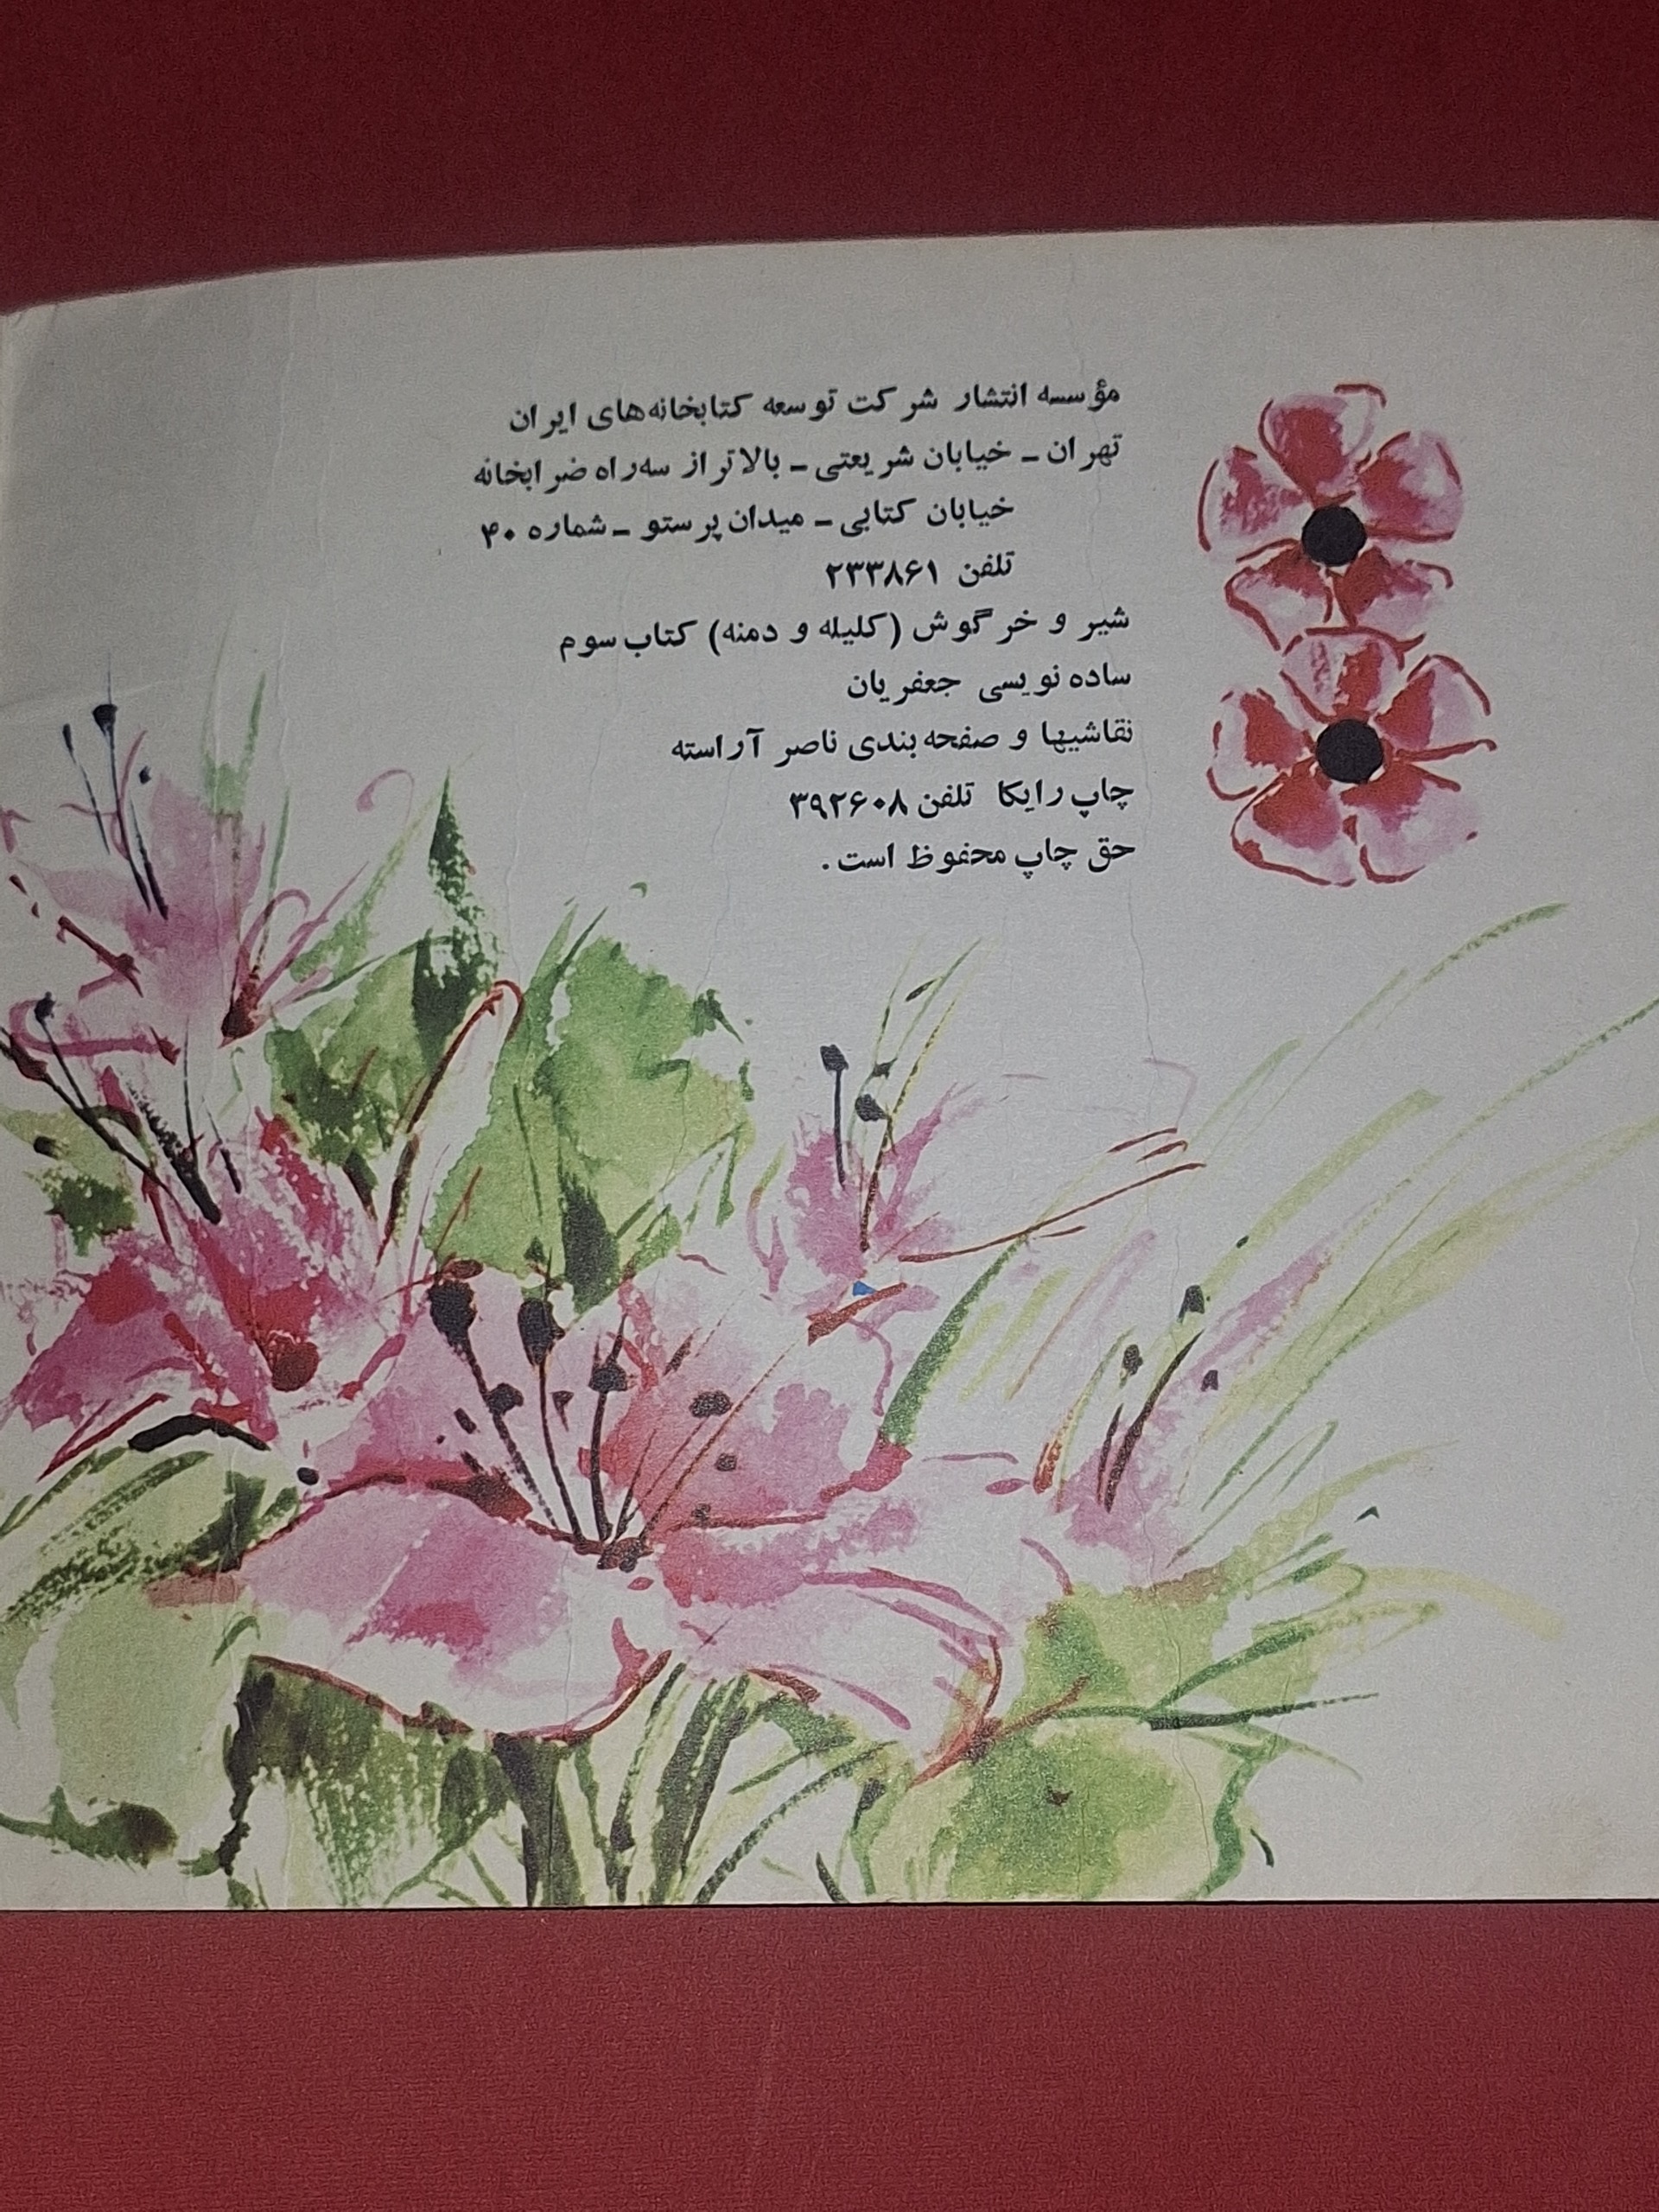 مؤسسه انتشار شرکت توسعه کتابخانه‌های ایران
تهران ـ خیابان شریعتی ـ بالاتر از سه‌راه ضرابخانه
خیابان کتابی ـ میدان پرستو ـ شماره ۴۰
تلفن ۲۳۳۸۶۱
شیر و خرگوش (کلیله و دمنه) کتاب سوم
ساده نویسی جعفریان
نقاشیها و صفحه بندی ناصر آراسته
چاپ رایکا تلفن ۳۹۲۶۰۸
حق چاپ محفوظ است.